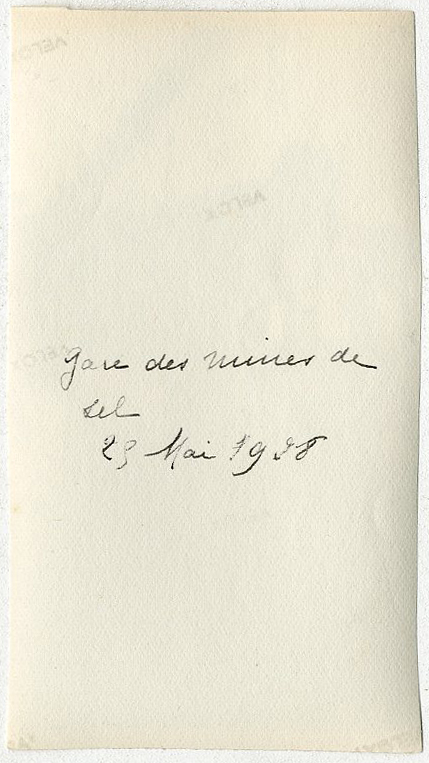 Gare des mines de
sel
23 Mai 1928